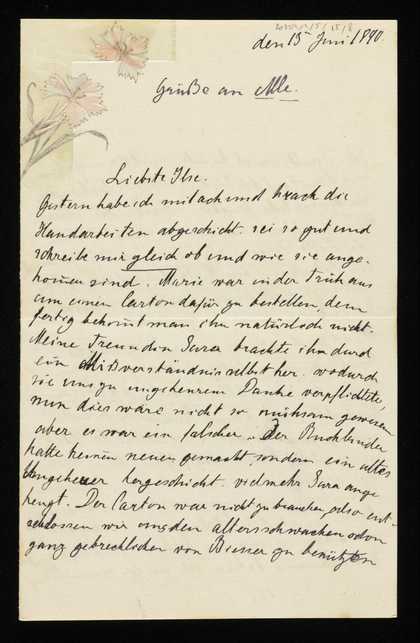 den 15ten Juni 1890
Grüße an Alle.
Liebste Ilse.
Gestern habe ich mit ach und krach die
Handarbeiten abgeschickt. sei so gut und
schreibe mir gleich ob und wie sie ange-
kommen sind. Marie war in der Früh aus
um einen Carton dafür zu bestellen, denn
fertig bekommt man ihn natürlich nicht.
Meine Freundin Sara brachte ihn durch
ein Mißverständnis selbst her. wodurch
sie uns zu ungeheurem Danke verpflichtete,
nun dies wäre nicht so mühsam gewesen
aber es war ein falscher. Der Buchbinder
hatte keinen neuen gemacht, sondern ein altes
Ungeheuer hergeschickt vielmehr Sara ange
hengt. Der Carton war nicht zu brauchen, also ent-
schlossen wir uns den altersschwachen schon
ganz gebrechlichen von zu benützen